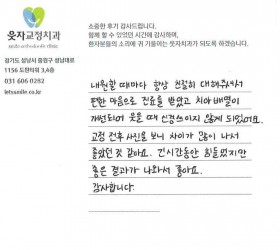 웃자교정치과
경기도 성남시 분당구 성남대로
1156 도원타워 3,4층
031 606 0282
letssmile.co.kr
소중한 후기 감사드립니다.
함께 할 수 있었던 시간에 감사하며,
환자분들의 소리에 귀 기울이는 웃자치과가 되도록 하겠습니다.
내원할 때마다 항상 친절히 대해주셔서
편한 마음으로 진료를 받았고 치아 배열이
개선되어 웃을 때 신경쓰이지 않게 되었어요.
교정 전후 사진을 보니 차이가 많이 나서
좋았던 것 같아요. 긴시간동안 힘들었지만
좋은 결과가 나와서 좋아요.
감사합니다.